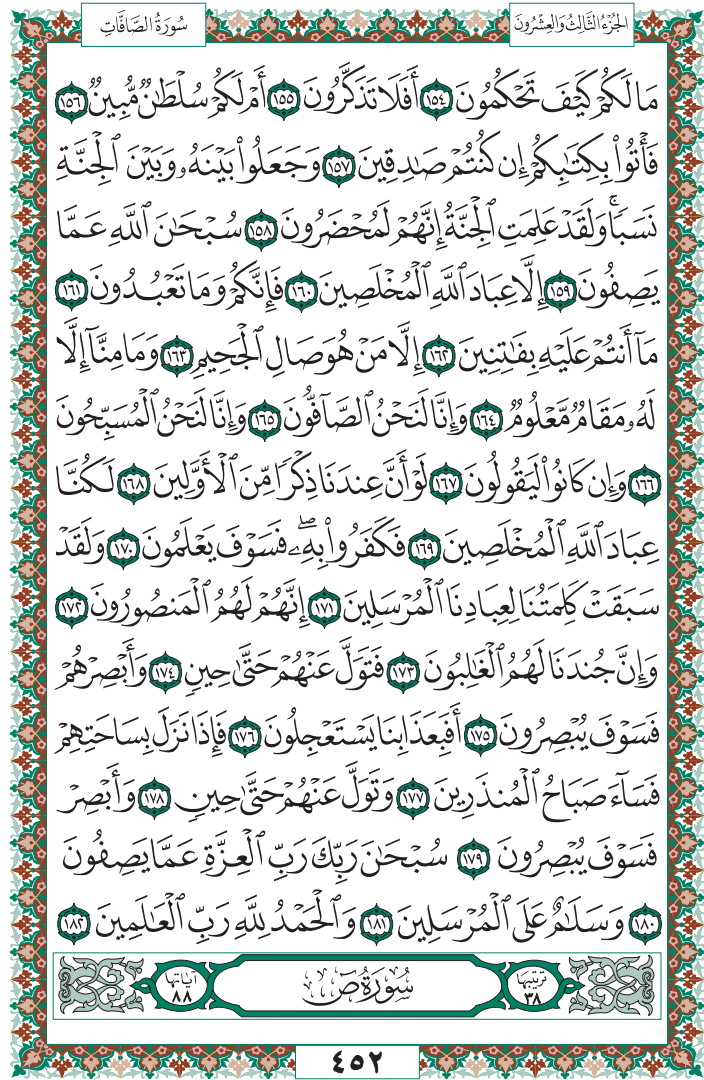 الجُزْءُ الثَّالِثُ وَالعِشْرُونَ
سُورَةُ الصَّافَّاتِ
مَا لَكُمْ كَيْفَ تَحْكُمُونَ ١٥٤ أَفَلَا تَذَكَّرُونَ ١٥٥ أَمْ لَكُمْ سُلْطَٰنٌ مُّبِينٌ ١٥٦
فَأْتُوا۟ بِكِتَٰبِكُمْ إِن كُنتُمْ صَٰدِقِينَ ١٥٧ وَجَعَلُوا۟ بَيْنَهُۥ وَبَيْنَ ٱلْجِنَّةِ
نَسَبًاۚ وَلَقَدْ عَلِمَتِ ٱلْجِنَّةُ إِنَّهُمْ لَمُحْضَرُونَ ١٥٨ سُبْحَٰنَ ٱللَّهِ عَمَّا
يَصِفُونَ ١٥٩ إِلَّا عِبَادَ ٱللَّهِ ٱلْمُخْلَصِينَ ١٦٠ فَإِنَّكُمْ وَمَا تَعْبُدُونَ ١٦١
مَآ أَنتُمْ عَلَيْهِ بِفَٰتِنِينَ ١٦٢ إِلَّا مَنْ هُوَ صَالِ ٱلْجَحِيمِ ١٦٣ وَمَا مِنَّآ إِلَّا
لَهُۥ مَقَامٌ مَّعْلُومٌ ١٦٤ وَإِنَّا لَنَحْنُ ٱلصَّآفُّونَ ١٦٥ وَإِنَّا لَنَحْنُ ٱلْمُسَبِّحُونَ
١٦٦ وَإِن كَانُوا۟ لَيَقُولُونَ ١٦٧ لَوْ أَنَّ عِندَنَا ذِكْرًا مِّنَ ٱلْأَوَّلِينَ ١٦٨ لَكُنَّا
عِبَادَ ٱللَّهِ ٱلْمُخْلَصِينَ ١٦٩ فَكَفَرُوا۟ بِهِۦۖ فَسَوْفَ يَعْلَمُونَ ١٧٠ وَلَقَدْ
سَبَقَتْ كَلِمَتُنَا لِعِبَادِنَا ٱلْمُرْسَلِينَ ١٧١ إِنَّهُمْ لَهُمُ ٱلْمَنصُورُونَ ١٧٢
وَإِنَّ جُندَنَا لَهُمُ ٱلْغَٰلِبُونَ ١٧٣ فَتَوَلَّ عَنْهُمْ حَتَّىٰ حِينٍ ١٧٤ وَأَبْصِرْهُمْ
فَسَوْفَ يُبْصِرُونَ ١٧٥ أَفَبِعَذَابِنَا يَسْتَعْجِلُونَ ١٧٦ فَإِذَا نَزَلَ بِسَاحَتِهِمْ
فَسَآءَ صَبَاحُ ٱلْمُنذَرِينَ ١٧٧ وَتَوَلَّ عَنْهُمْ حَتَّىٰ حِينٍ ١٧٨ وَأَبْصِرْ
فَسَوْفَ يُبْصِرُونَ ١٧٩ سُبْحَٰنَ رَبِّكَ رَبِّ ٱلْعِزَّةِ عَمَّا يَصِفُونَ
١٨٠ وَسَلَٰمٌ عَلَى ٱلْمُرْسَلِينَ ١٨١ وَٱلْحَمْدُ لِلَّهِ رَبِّ ٱلْعَٰلَمِينَ ١٨٢
ترتيبها ٣٨
سُورَةُ صٓ
آياتها ٨٨
٤٥٢